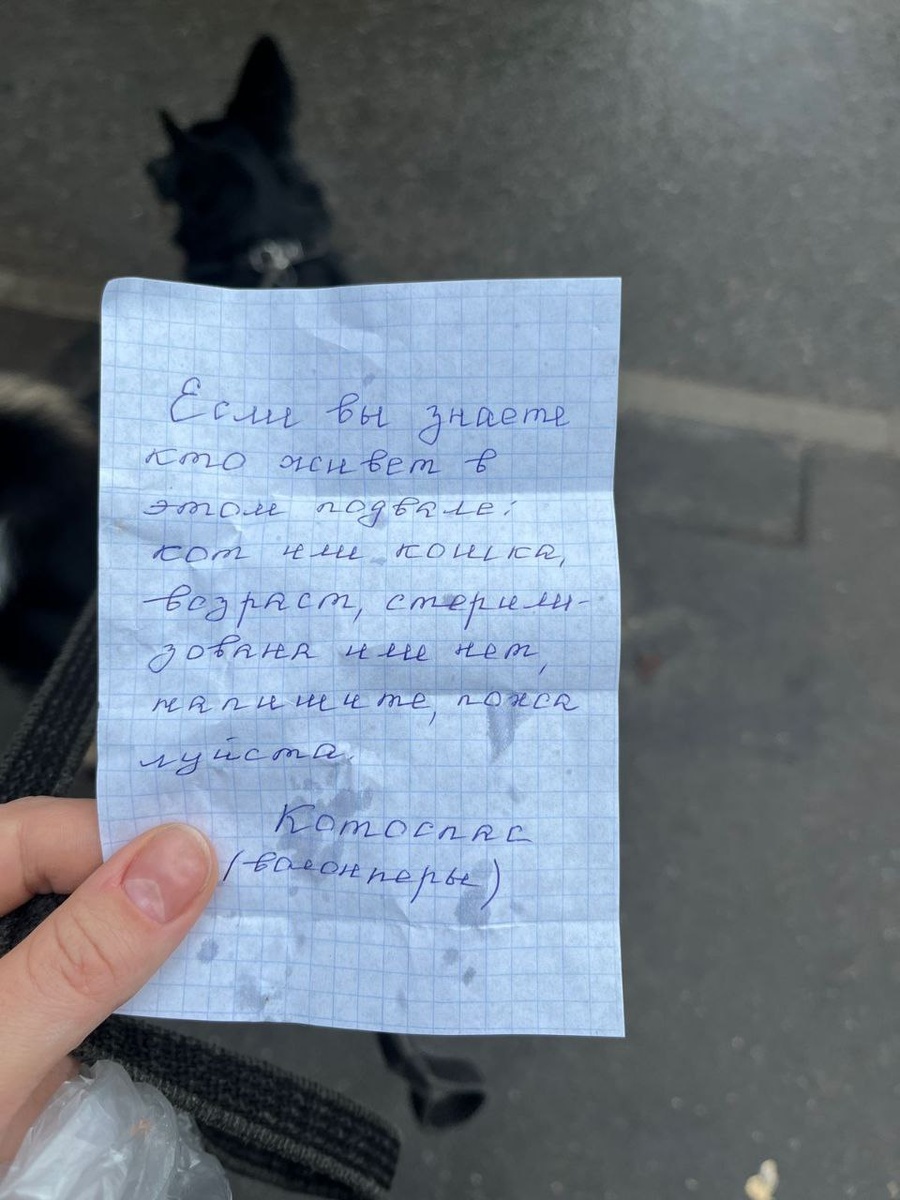 Если вы знаете
кто живет в
этом подвале:
кот или кошка,
возраст, стерили-
зована или нет,
напишите, пожа
луйста.
Котоспас
(волонтеры)